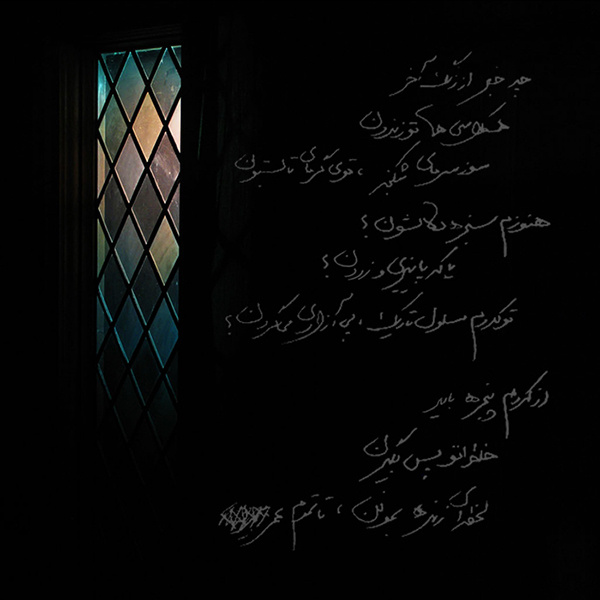 چه خبر از زنگ آخر
همکلاسی ها تو زندون
سوز سرمای شکنجه ، توی گرمای تابستون
هنوزم سبزه دلاشون؟
یا که پاییزی و زردن؟
تو کدوم سلول تاریک ، پی آزادی می گردن؟
از کدوم پنجره باید
خاطراتو پس بگیرن
لحظه ای زنده بمونن ، تا تموم عمر